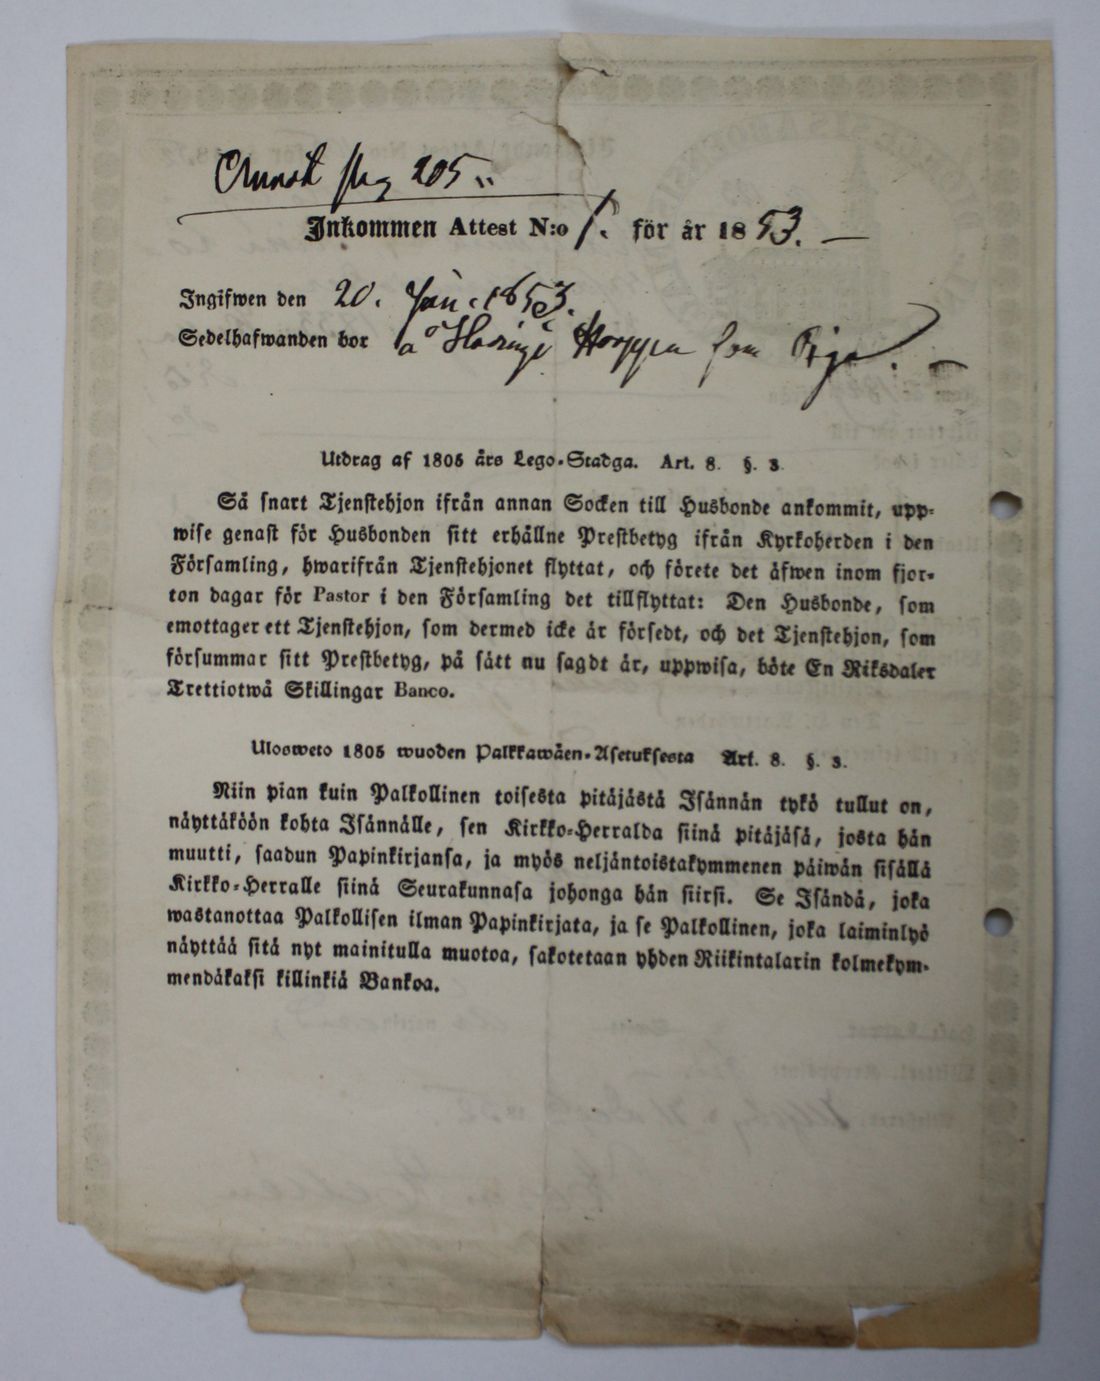 pag 205
Inkommen Attest N:o 1. för år 1853.
Ingifwen den 20. Jan. 1853.
Sedelhafwanden bor å Haringe Hoppa som Piga.
Utdrag af 1805 års Lego-Stadga. Art. 8. §. 3.
Så snart Tjenstehjon ifrån annan Socken till Husbonde ankommit, upp-
wise genast för Husbonden sitt erhållne Prestbetyg ifrån Kyrkoherden i den
Församling, hwarifrån Tjenstehjonet flyttat, och förete det äfwen inom fjor-
ton dagar för Pastor i den Församling det tillflyttat: Den Husbonde, som
emottager ett Tjenstehjon, som dermed icke är försedt, och det Tjenstehjon, som
försummar sitt Prestbetyg, på sätt nu sagdt är, uppwisa, böte En Riksdaler
Trettiotwå Skillingar Banco.
Ulosweto 1805 wuoden Palkkawäen-Asetuksesta Art. 8. §. 3.
Niin pian kuin Palkollinen toisesta pitäjästä Isännän tykö tullut on,
näyttäköön kohta Isännälle, sen Kirkko-Herralda siinä pitäjäsä, josta hän
muutti, saadun Papinkirjansa, ja myös neljäntoistakymmenen päiwän sisällä
Kirkko-Herralle siinä Seurakunnasa johonga hän siirsi. Se Isändä, joka
wastanottaa Palkollisen ilman Papinkirjata, ja se Palkollinen, joka laiminlyö
näyttää sitä nyt mainitulla muotoa, sakotetaan yhden Riikintalarin kolmekym-
mendäkaksi killinkiä Bankoa.